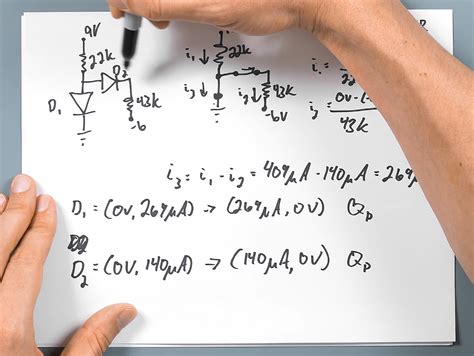 9V
22k
D₂
D₁
43k
-6
i₁ ↓
22k
i₃ ↓
i₂ ↓
43k
-6V
i₁ =
22
i₂ = 0V-(-
43k
i₃ = i₁ - i₂ = 409μA - 140μA = 269μ
D₁ = (0V, 269μA) → (269μA, 0V) Q_D
D₂ = (0V, 140μA) → (140μA, 0V) Q_D